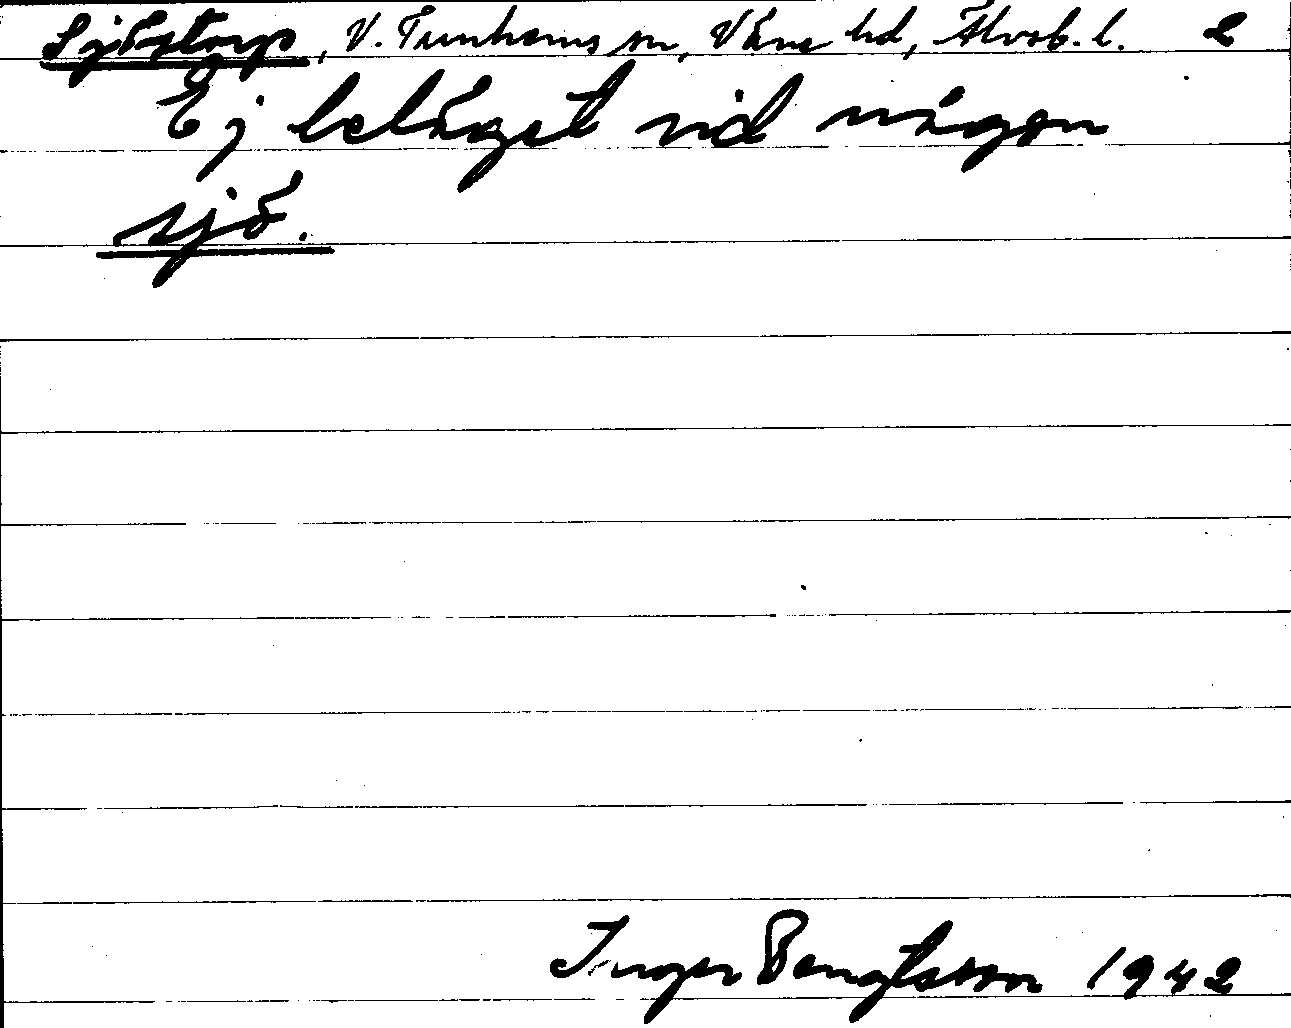 Sjöstorp, V. Tunhems sn, Väne hd, Älvsb. l. 2
Ej beläget vid någon
sjö.
Inger Bengtsson 1942